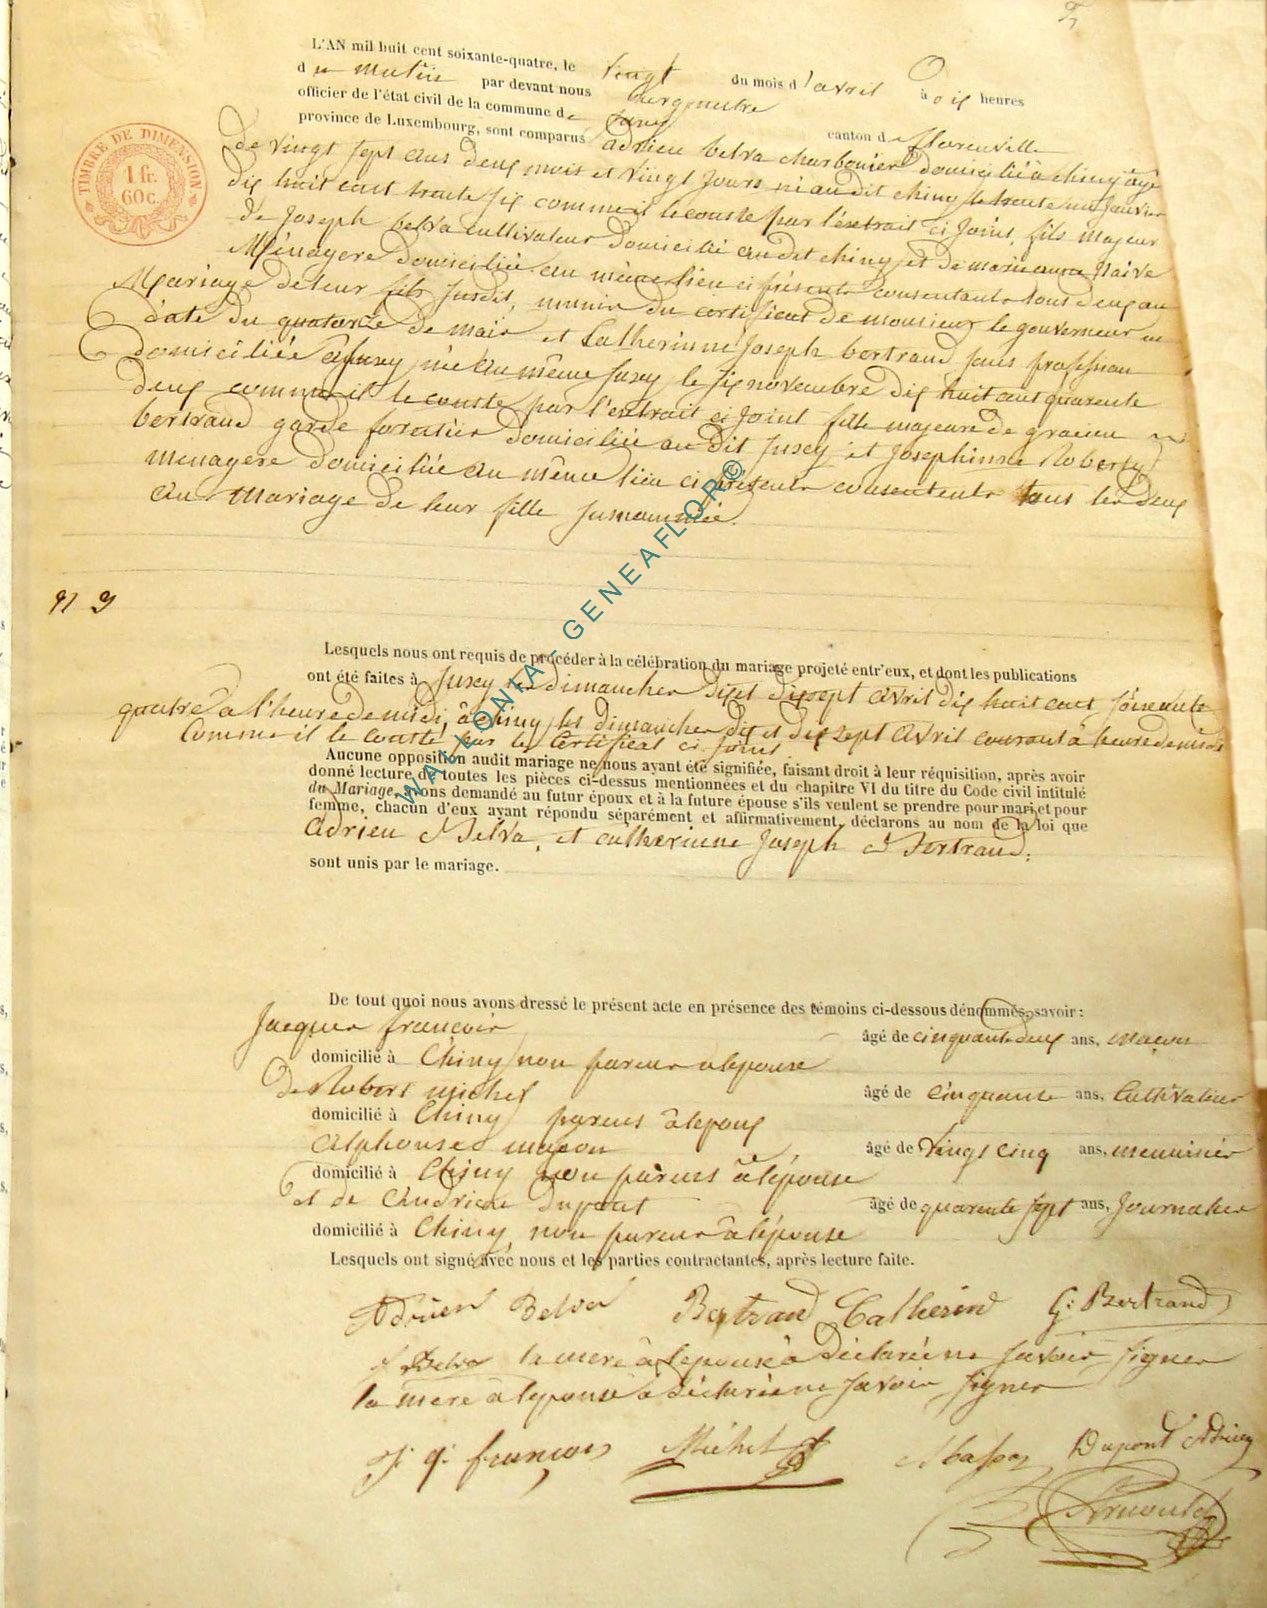 L'AN mil huit cent soixante-quatre, le vingt du mois d'avril à dix heures
du matin par devant nous Bourgmestre
officier de l'état civil de la commune de canton de florenville
province de Luxembourg, sont comparus adrien belva charbonier domicilié à chiny âgé
de vingt sept ans deux mois et vingt jours né au dit chiny le trente un janvier
dix huit cent trente six comme il le conste par l'extrait ci joint, fils majeur
de joseph belva cultivateur domicilié au dit chiny et de marie
Ménagere domiciliée au même lieu ci présents consentants tous deux au
Mariage de leur fils susdit, munis du certificat de monsieur le gouverneur en
date du quatorze de mars et Catherinne joseph bertrand sans profession
domiciliée à née au même le six novembre dix huit cent quarente
deux comme il le conste par l'extrait ci joint fille majeure de
bertrand garde forestier domicilié au dit et josephinne
menagere domiciliée au même lieu ci présents consentents tous les deux
au mariage de leur fille susnommée.
N 9
TIMBRE DE DIMENSION
1 fr.
60 c.
Lesquels nous ont requis de procéder à la célébration du mariage projeté entr'eux, et dont les publications
ont été faites à les dimanches dix et dixsept avril dix huit cent soixante
quatre à l'heure de midi, à chiny les dimanches dix et dix sept avril courant à heure de midi
Comme il le conste par les certificat ci joint
Aucune opposition audit mariage ne nous ayant été signifiée, faisant droit à leur réquisition, après avoir
donné lecture de toutes les pièces ci-dessus mentionnées et du chapitre VI du titre du Code civil intitulé
du Mariage, avons demandé au futur époux et à la future épouse s'ils veulent se prendre pour mari et pour
femme, chacun d'eux ayant répondu séparément et affirmativement, déclarons au nom de la loi que
Adrien Belva, et catherinne joseph Bertrand.
sont unis par le mariage.
De tout quoi nous avons dressé le présent acte en présence des témoins ci-dessous dénommés, savoir :
Jacques francois âgé de cinquante deux ans, maçon
domicilié à Chiny non parens a lepouse
De Robert michel âgé de cinquante ans, Cultivateur
domicilié à Chiny parens à lepoux
Alphonse masson âgé de vingt cinq ans, menuisier
domicilié à Chiny non parens à l'épouse
et de Andrien Dupont âgé de quarente sept ans, Journalier
domicilié à Chiny non parens à l'épouse
Lesquels ont signé avec nous et les parties contractantes, après lecture faite.
Adrien Belva Bertrand Catherine G: Bertrand
Belva la mere à lepouse à déclarée ne savoir signer
la mere à lepouse à déclarée ne savoir signer
J. q. françois Michel Masson Dupont Adrien
Arnould
WALLONIA - GENEAFLOR©